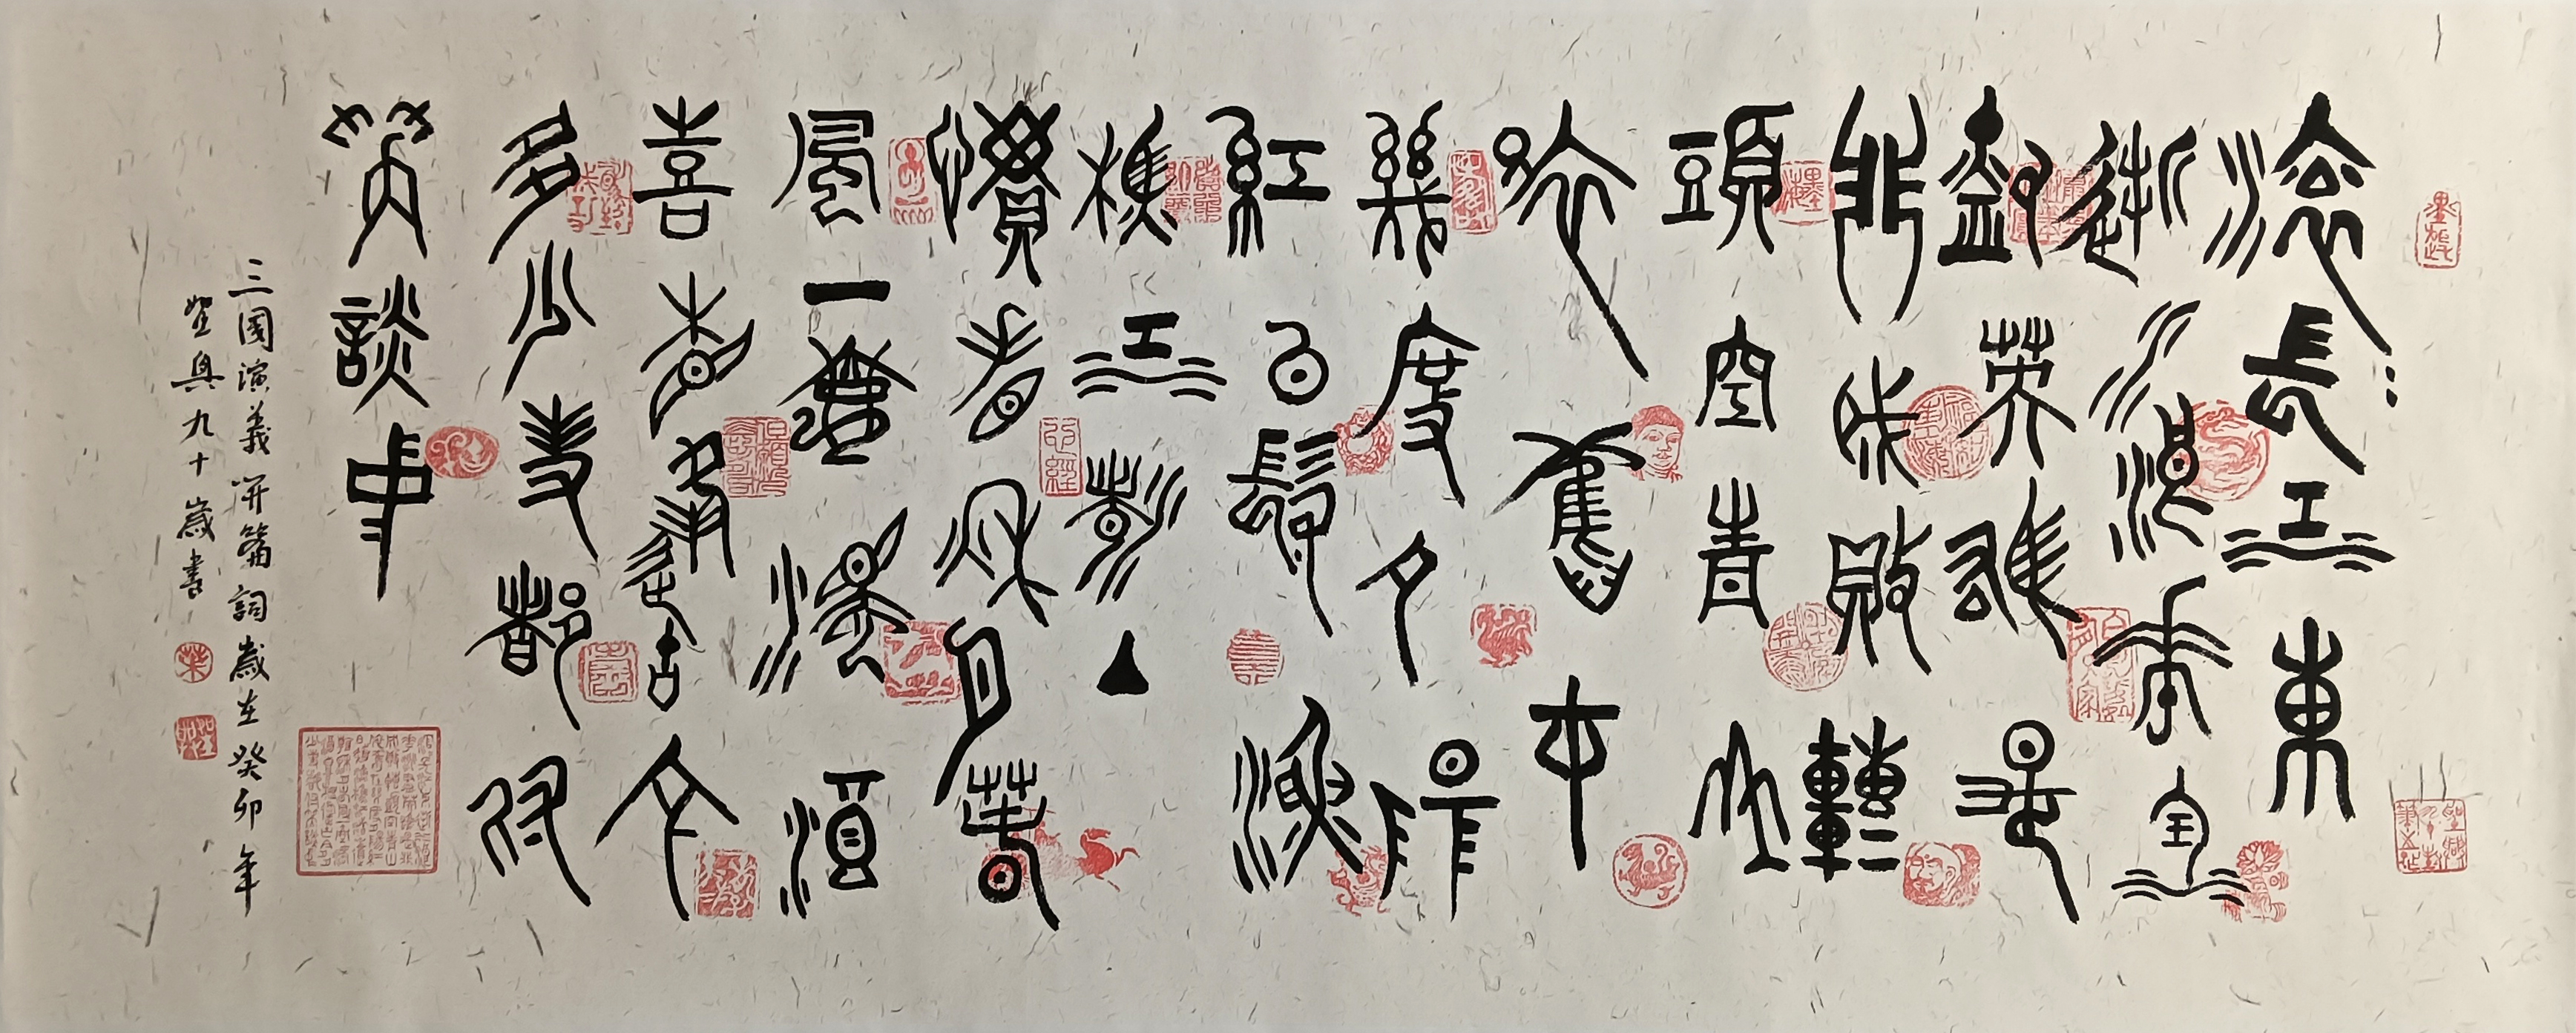 滾:長江東
逝水浪花淘
盡英雄是
非成敗轉
頭空青山
依舊在
幾度夕陽
紅白髮漁
樵江渚上
慣看秋月春
風一壺濁酒
喜相逢古今
多少事都付
笑談中
三國演義開篇詞歲在癸卯年
聖興九十歲書